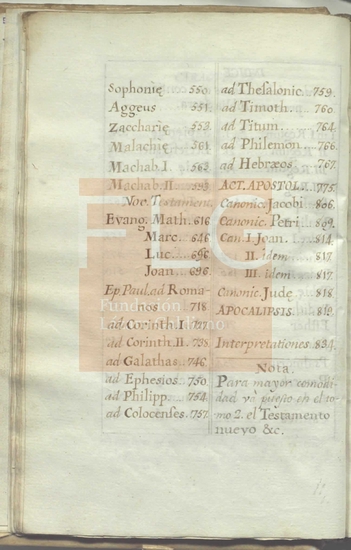 Sophonię 550.
Aggeus 551.
Zaccharię 553.
Malachię 561.
Machab. I. 563.
Machab. II. 593
Nov. Testament.
Evang. Math. 616
Marc. 646
Luc. 696
Joan. 696.
Ep. Paul. ad Roma-
nos 718
ad Corinth. I. 727.
ad Corinth. II. 738.
ad Galathas 746.
ad Ephesios 750.
ad Philipp. 754.
ad Colocenses. 757.
ad Thesalonic. 759.
ad Timoth. 760.
ad Titum. 764.
ad Philemon. 766.
ad Hebræos. 767.
ACT. APOSTOL. 775.
Canonic. Jacobi 806.
Canonic. Petri 809.
Can. I Joan. 814.
II. idem 817.
III. idem 817.
Canonic. Judę 818
APOCALIPSIS. 819.
Interpretationes 834.
Nota.
Para mayor comodi-
dad vá puesto en el to-
mo 2. el Testamento
nuevo &c.
FUG
Fundación